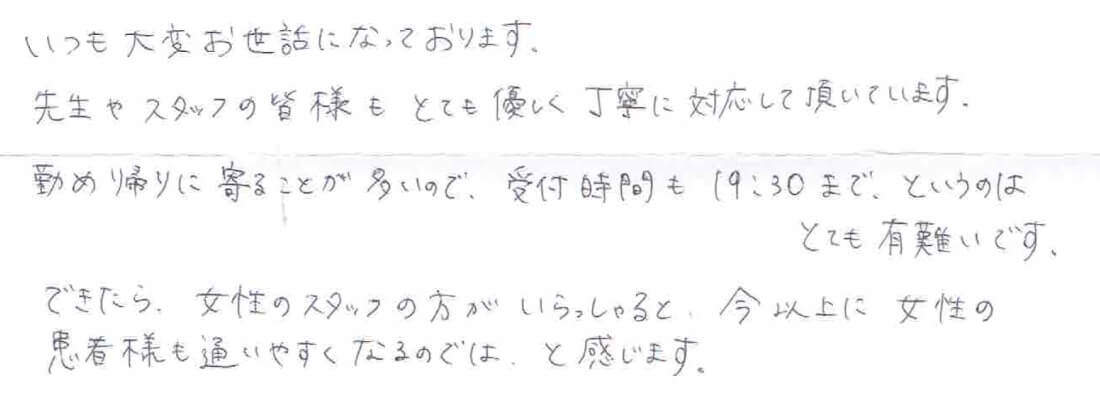 いつも大変お世話になっております.
先生やスタッフの皆様もとても優しく丁寧に対応して頂いています.
勤め帰りに寄ることが多いので、受付時間も19:30まで、というのは
とても有難いです.
できたら、女性のスタッフの方がいらっしゃると、今以上に女性の
患者様も通いやすくなるのでは、と感じます。